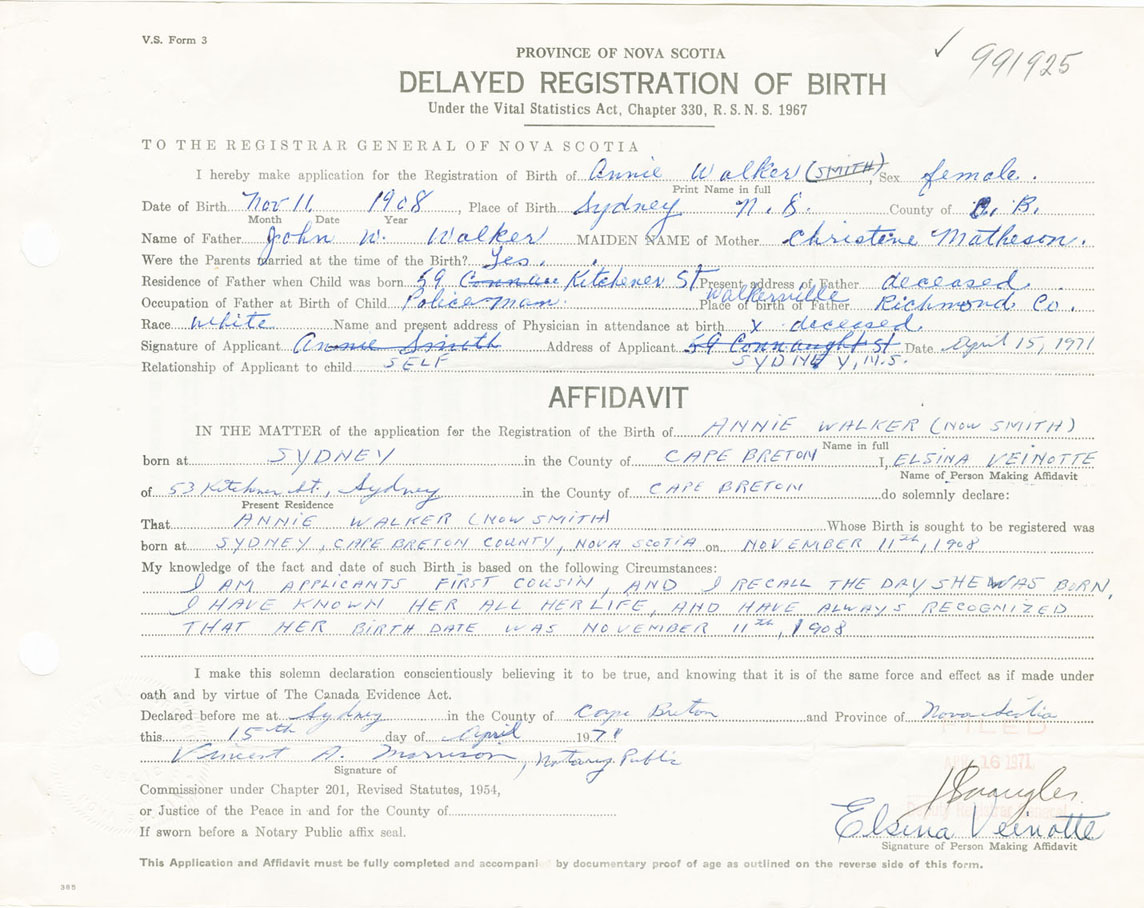 V.S. Form 3
991925
PROVINCE OF NOVA SCOTIA
DELAYED REGISTRATION OF BIRTH
Under the Vital Statistics Act, Chapter 330, R.S.N.S. 1967
TO THE REGISTRAR GENERAL OF NOVA SCOTIA
I hereby make application for the Registration of Birth of Annie Walker (SMITH), Sex female.
Print Name in full
Date of Birth Nov 11 1908, Place of Birth Sydney N.S. County of C.B.
Month Date Year
Name of Father John W. Walker MAIDEN NAME of Mother Christene Matheson.
Were the Parents married at the time of the Birth? Yes.
Residence of Father when Child was born 59 Kitchener St Present address of Father deceased
Occupation of Father at Birth of Child Police man. Place of birth of Father Walkerville Richmond Co.
Race white Name and present address of Physician in attendance at birth x deceased.
Signature of Applicant Annie Smith Address of Applicant 59 Connaught St Date April 15, 1971
Relationship of Applicant to child SELF SYDNEY, N.S.
AFFIDAVIT
IN THE MATTER of the application for the Registration of the Birth of ANNIE WALKER (NOW SMITH)
Name in full
born at SYDNEY in the County of CAPE BRETON I, ELSINA VEINOTTE
Name of Person Making Affidavit
of 53 Kitchner St., Sydney in the County of CAPE BRETON do solemnly declare:
Present Residence
That ANNIE WALKER (NOW SMITH) Whose Birth is sought to be registered was
born at SYDNEY, CAPE BRETON COUNTY, NOVA SCOTIA on NOVEMBER 11th, 1908
My knowledge of the fact and date of such Birth is based on the following Circumstances:
I AM APPLICANTS FIRST COUSIN, AND I RECALL THE DAY SHE WAS BORN,
I HAVE KNOWN HER ALL HER LIFE, AND HAVE ALWAYS RECOGNIZED
THAT HER BIRTH DATE WAS NOVEMBER 11th, 1908
I make this solemn declaration conscientiously believing it to be true, and knowing that it is of the same force and effect as if made under
oath and by virtue of The Canada Evidence Act.
Declared before me at Sydney in the County of Cape Breton and Province of Nova Scotia
this 15th day of April 1971
FILED
Vincent A. Morrison, Notary Public
APR 16 1971
Signature of
Commissioner under Chapter 201, Revised Statutes, 1954,
or Justice of the Peace in and for the County of
Deputy Registrar General
Elsina Veinotte
If sworn before a Notary Public affix seal.
Signature of Person Making Affidavit
This Application and Affidavit must be fully completed and accompani by documentary proof of age as outlined on the reverse side of this form.
385